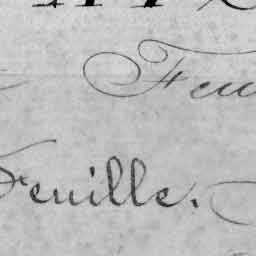 Feu
Feuille.